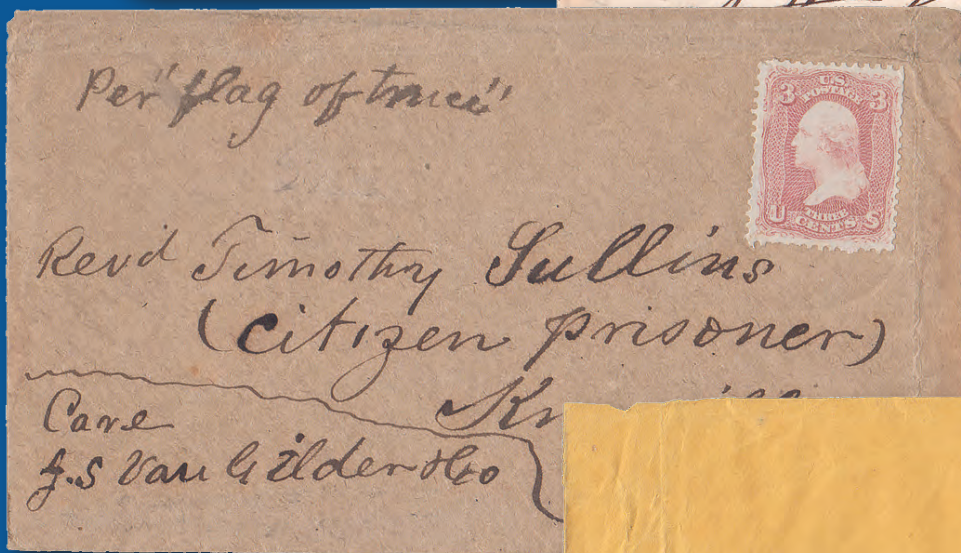 Per "flag of truce"
3 U.S. 3
POSTAGE
U THREE S
CENTS
Revd Timothy Sullins
(citizen prisoner)
Care
J.S Van Gilder & Co